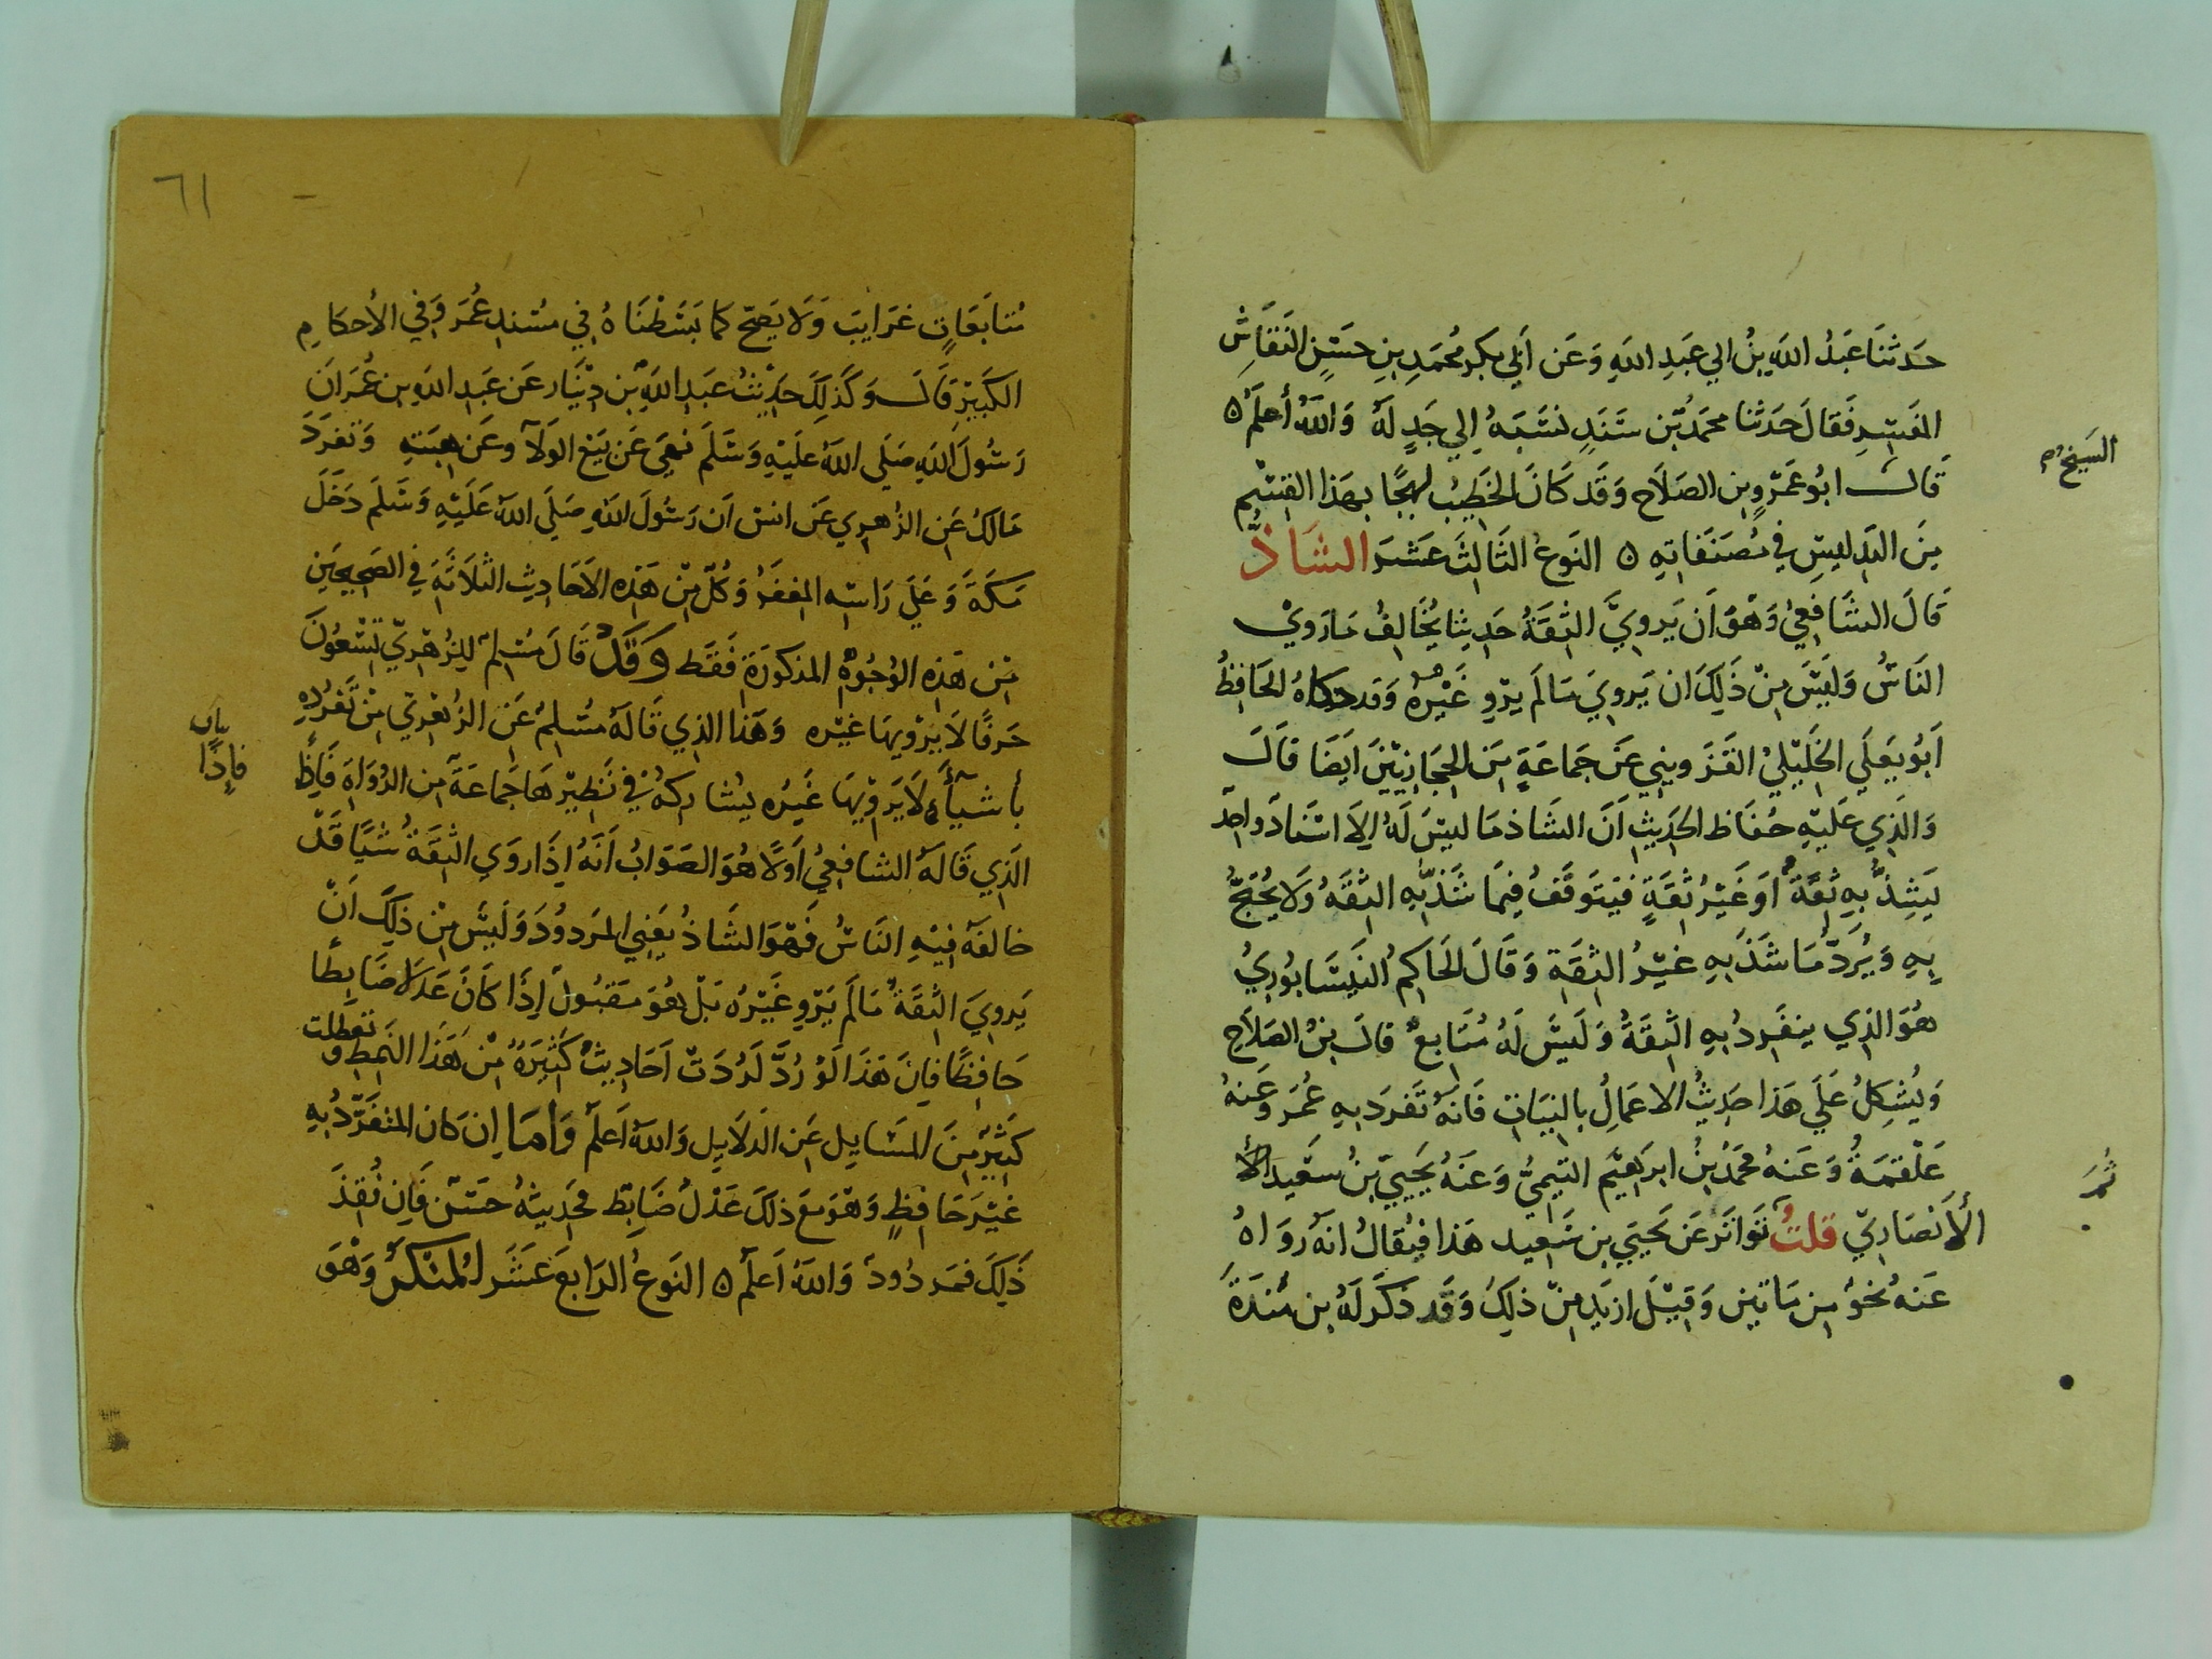 حَدثنَا عَبدُ اللَّهِ بنُ ابي عَبدِ اللَّهِ وَعَن أبي بكر مُحمَدِ بنِ حسَنٍ النَقَاشِ
المفَسِرِ فَقَال حَدَثنا محمَدُ بن سَنَدٍ نسَبَهُ إلي جَدٍ لهُ وَاللَّهُ أعلَمُ ٥
قَالَ ابُو عَمْروٍ بن الصَلَاح وَقَد كَانَ الخَطيبُ لهجًا بهَذا القِسْمِ
مِنَ التدليسِ في مُصَنَفاتِهِ ٥ النَوعُ الثَالثَ عَشَرَ الشَاذُّ
قَالَ الشَافِعيُ وَهْوَ اَن يَروِيَ الثِقَةُ حَدِيثا يُخَالِفُ مَا رَوَيْ
النَاسُ وَليسَ مِنْ ذَلِكَ ان يَروِيَ مَا لَم يرْوِ غَيْرهُ وَقد حكاهُ الحَافِظُ
اَبُو يَعلَي الخَلِيْليُ القَزوِيني عَن جَمَاعَةٍ مِنَ الحِجَازِيينَ ايَضَا قَالَ
وَالذِي عَليْهِ حُفَاظ الحَدِيثِ اَنَ الشَاذ مَا ليسَ لَهُ إلَا اسْنَادٌ واحِدٌ
يَشِذُّ بِهِ ثِقَةٌ أو غَيْرُ ثِقَةٍ فيَتوَقَفُ فيمَا شَذ بِهِ الثِقَهُ وَلا يُحْتَجُّ
بِهِ وَيُرَدُّ مَا شَذَ بِهِ غيْرُ الثِقَةِ وَقَالَ الحَاكِمُ النَيسَابُورِيُ
هُوَ الذِي ينفَرِدُ بِهِ الثِقَةُ وَليسَ لَهُ مُتَابِعٌ قالَ بنُ الصَلَاحِ
وَيُشكِلُ عَلَي هَذا حَدِيثُ الاعمَالِ بالنِيَاتِ فَانَهُ تَفردَ بِهِ عُمَرَ وَعَنهُ
عَلْقَمَةُ وَعَنهُ محَمَدُ بنُ ابرَاهِيْمَ التَيمِيُ وَعَنَهُ يَحيَيَ بنُ سعَيدٍ الأ
الأَنصَارِيّ قلتُ تَواتَر عَن يَحيَي بن سَعيد هَذا فيُقالُ انَهُ رَوَاهُ
عَنهُ نحْوٌ من مَاتين وَقيْلَ ازيَد مِنْ ذَلِكَ وَقَد ذكَرَ لَهُ بن مَنْدَةَ
الشيخ
ثُمَ
٦١
مُتابَعَاتٍ غَرَايبَ وَلَا يَصحّ كما بَسَطْنَاهُ في مسْندِ عُمَرَ وَفي الأحكامِ
الكَبيْرِ قَالَ وَكَذلِكَ حَدِيْثُ عبَدِ اللَّهِ بْنِ دِيْنَار عَن عَبدِ اللَّهِ بنِ عُمَرَ ان
رَسُولَ اللَّهِ صَلَى اللَّهُ علَيْهِ وَسَلَمَ نَهيَ عَن بَيْع الوَلَآ وعَن هِبَتِهِ وَتفَردَ
مَالكُ عَنِ الزُهرِي عَن انسٍ اَن رَسُولَ اللَّهِ صَلَيَ اللَّهُ عَلَيْهِ وَسَلَمَ دَخَلَ
مَكةَ وَعَلَي رَاسهِ المِغفَرُ وَكُلُ مِنْ هَذِهِ الأحَادِيثِ الثَلَاثَهَ في الصَحِيحَيْنِ
مِنْ هَذِهِ الوُجُوهْ المذكورَة فَقَط وَقَدْ قَالَ مُسِلمٌ للِزُهْرِيّ تِسْعُونَ
حَرفًا لَا يَروْيهَا غيْره وَهَذا الذِي قَالَهُ مُسْلِمُ عَنِ الزُهْرِي مِنْ تَفَرُدِهِ
بأشيآءَ لَا يَروْيهَا غَيرُه يشَاركهُ في نَظِيْرهَا جمَاعَةٌ من الرُوَاهِ فَاذِا
الَذِي قَالَهُ الشافِعيُ أولًا هُوَ الصَوَابُ أنَهُ إذَا رَوَي الثِقَةُ شَيًا قَدْ
خالفَهُ فيْهِ النَاسُ فَهْوَ الشَاذُ يَعْني المَردوُدَ وَليسَ مِنْ ذلِكَ اَنْ
يَروِيَ الثِقَةُ مَا لَم يَرْوِ غَيْرُه بَلْ هُوَ مقَبُولٌ إذَا كَانَ عَدلًا ضَابِطًا
حَافِظًا فَإنَ هَذَا لَوْ رُدَّ لَرُدَتْ اَحَادِيثُ كَثِيرَةٌ مِنْ هَذَا النَمطِ وتعطلت
كثيْرٌ مِنَ المسَايِل عَنِ الدَلَايِل وَاللَّهُ اَعلَم وَامَا إن كان المنفَرِدُ بِهِ
غيْرَ حَافِظٍ وَهْوَ مَعَ ذلكَ عَدلٌ ضَابِط فحَدِيثهُ حسَنٌ فَإن فُقِدَ
ذَلِكَ فمَردُودٌ وَاللَّهُ اَعلَم ٥ النَوعُ الرَابعَ عَشَرَ المُنكرُ وَهْوَ
بيان
فاذًا